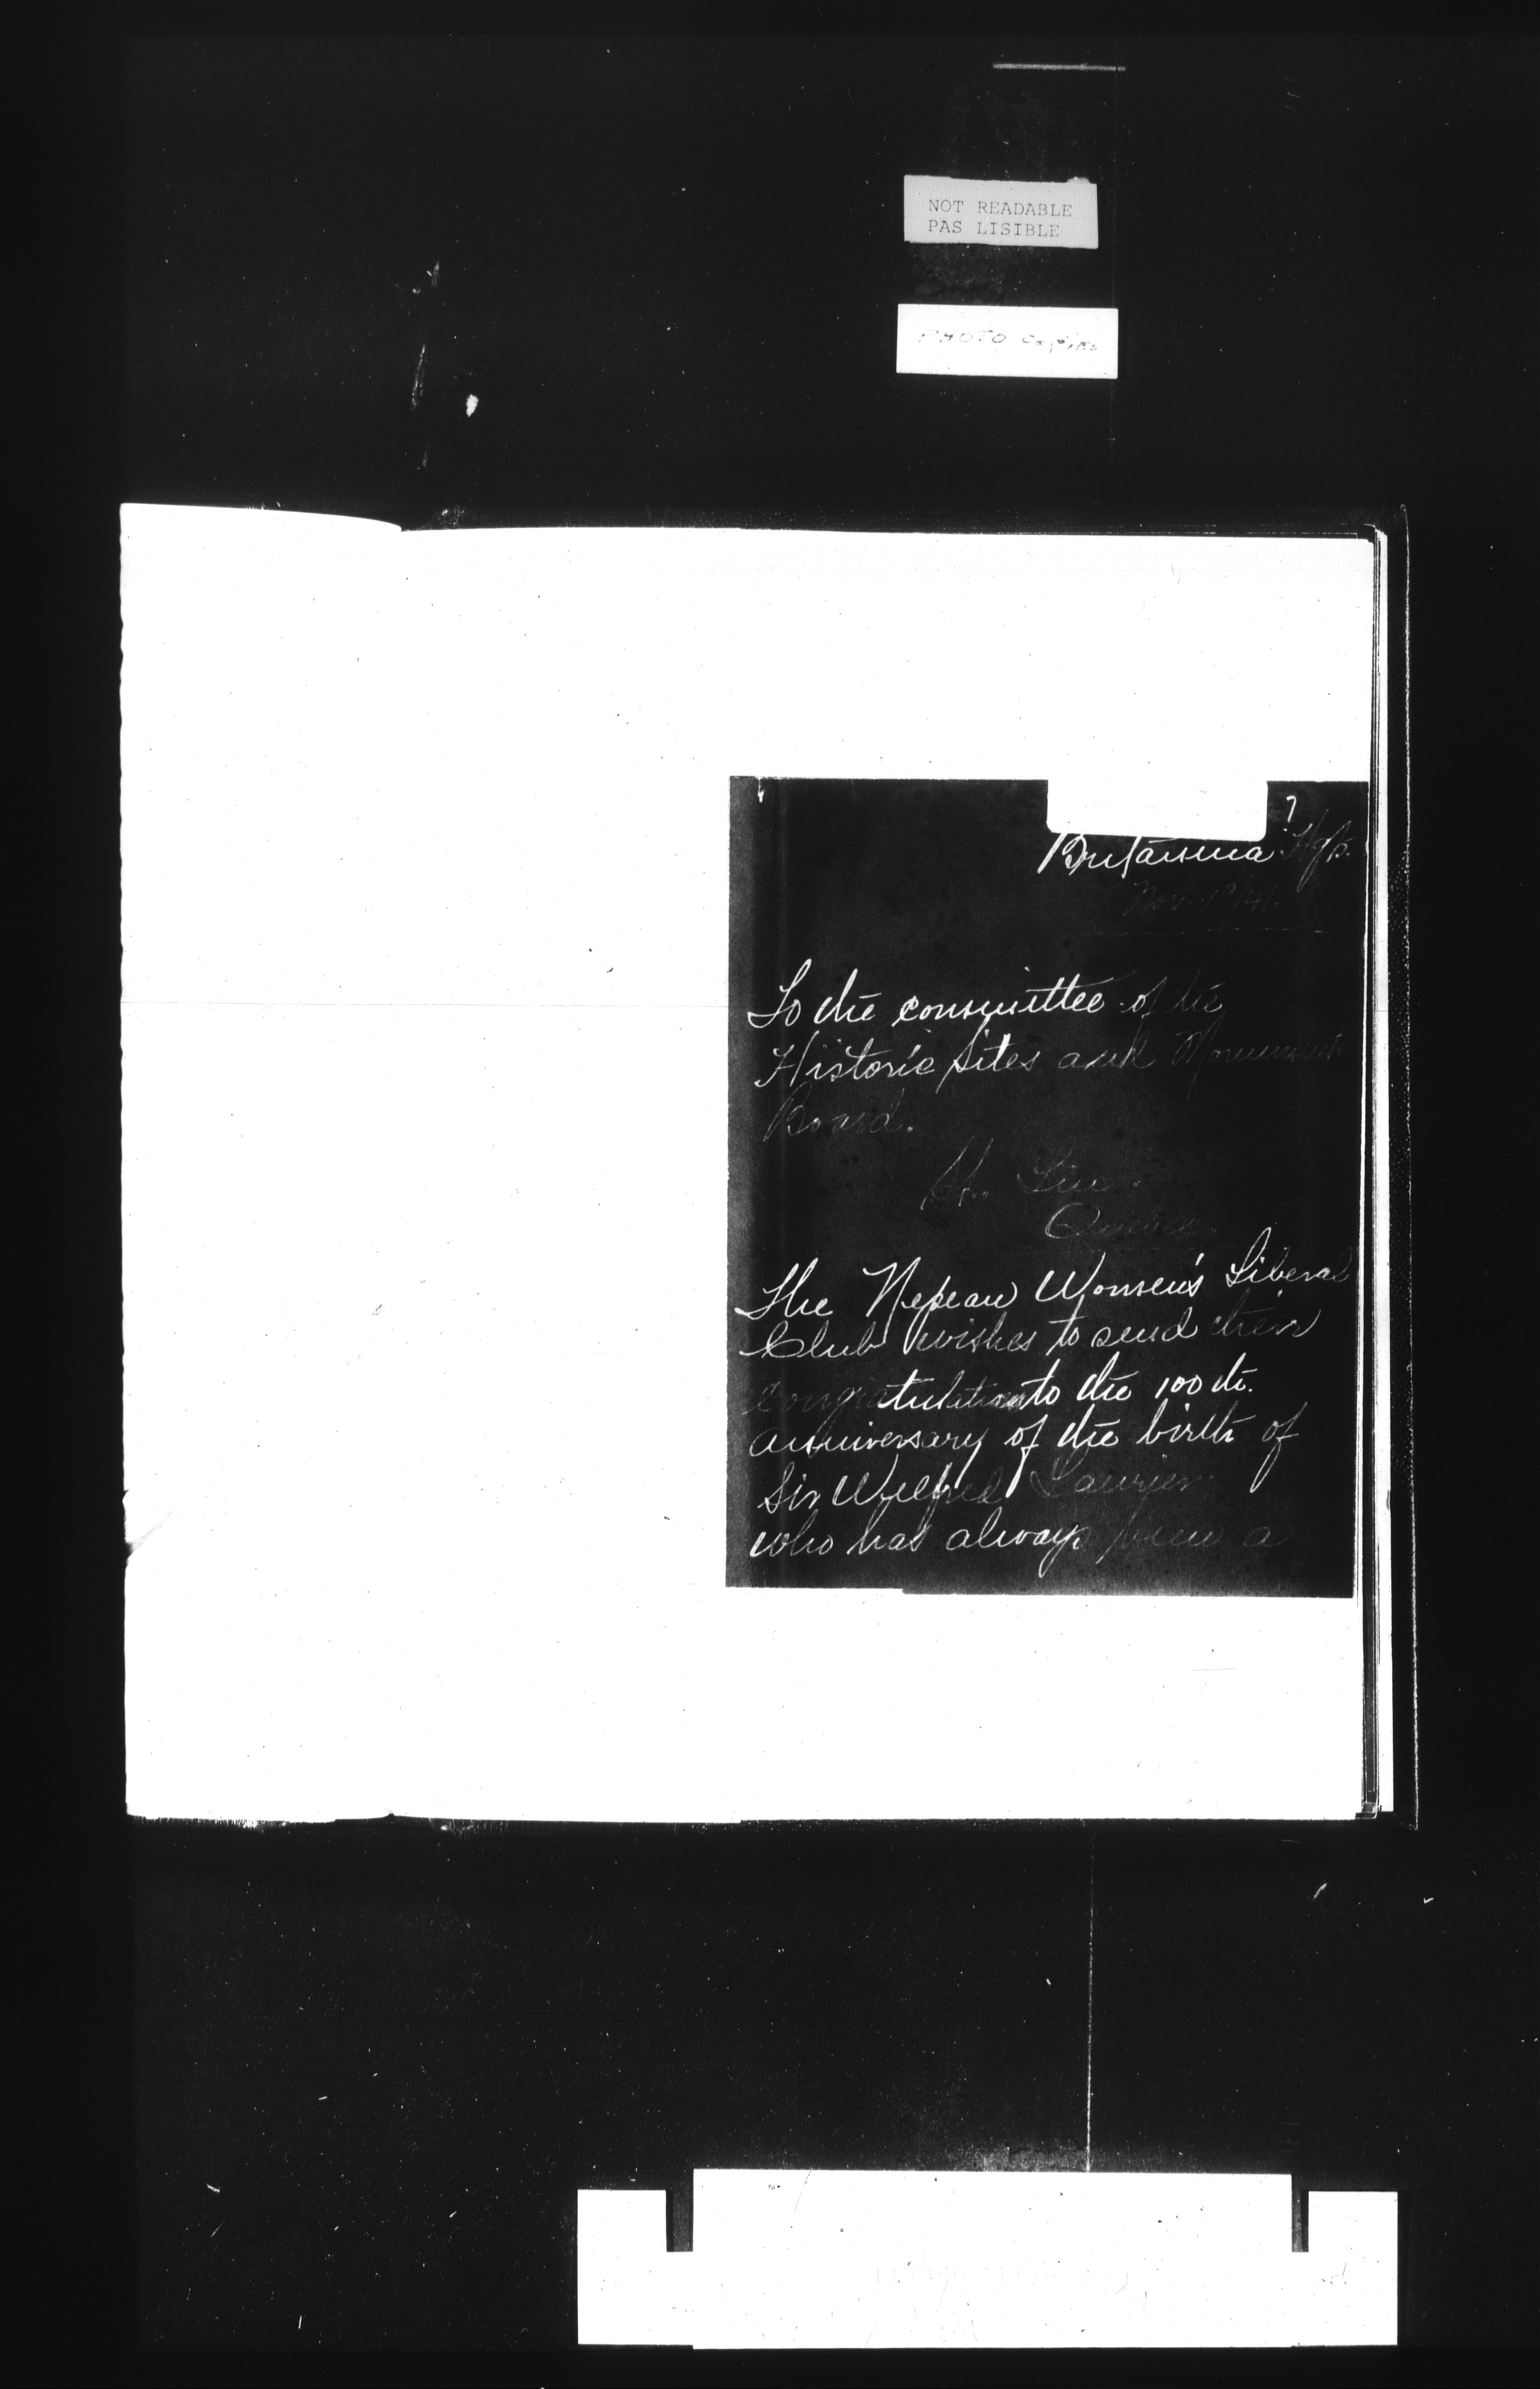 NOT READABLE
PAS LISIBLE
PHOTO Copies
7
Britannia Hgts.
Nov. 19/41.
To the committee of the
Historic Sites and Monument
Board.
St. Lin
Quebec.
The Nepean Women's Liberal
Club wishes to send their
congratulations to the 100 th.
anniversary of the birth of
Sir Wilfred Laurier
who has always been a